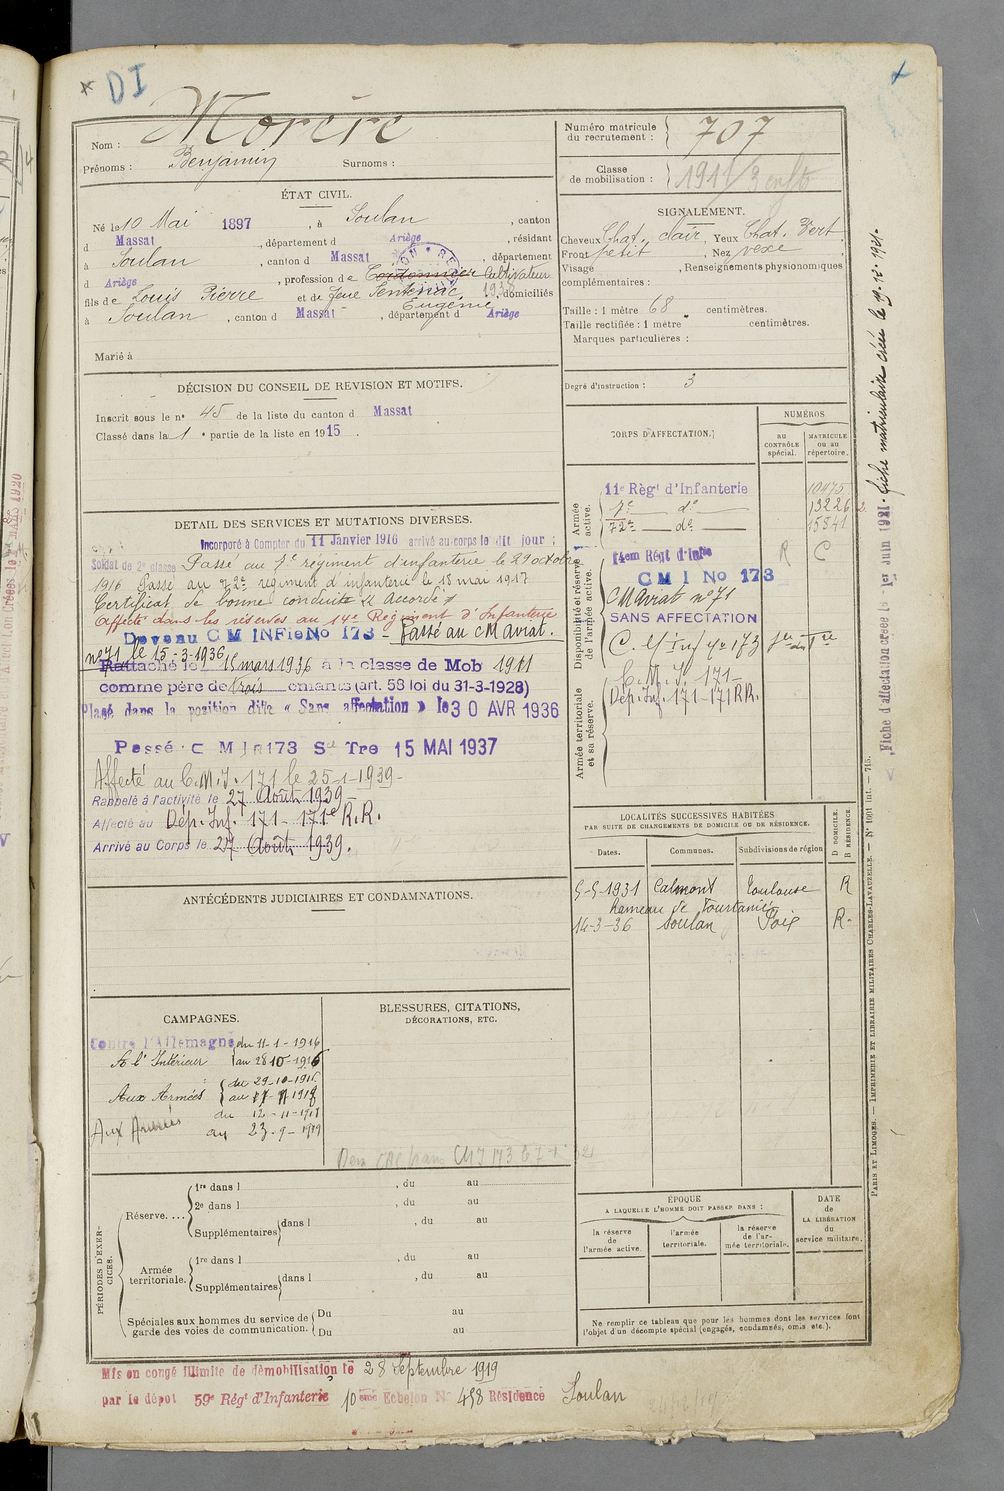 * DI
Nom : Morère
Prénoms : Benjamin Surnoms :
Numéro matricule du recrutement : 707
Classe de mobilisation : 1911/3 enfts
ÉTAT CIVIL.
Né le 10 Mai 1897, à Soulan, canton
d Massat, département d Ariège, résidant
à Soulan, canton d Massat, département
d Ariège, profession de Cordonnier Cultivateur
fils de Louis Pierre et de feue Sentenac Eugénie, domiciliés
à Soulan, canton d Massat, département d Ariège
Marié à
SIGNALEMENT.
Cheveux Chat. clair, Yeux Chat. Vert
Front petit, Nez vexe
Visage , Renseignements physionomiques
complémentaires :
Taille : 1 mètre 68 centimètres.
Taille rectifiée : 1 mètre centimètres.
Marques particulières :
Degré d'instruction : 3
DÉCISION DU CONSEIL DE REVISION ET MOTIFS.
Inscrit sous le n° 45 de la liste du canton d Massat
Classé dans la 1 e partie de la liste en 1915.
CORPS D'AFFECTATION.
NUMÉROS
AU CONTRÔLE spécial.
MATRICULE OU AU répertoire.
Armée active.
11e Régt d'Infanterie 10475
7e do 13226
72e do 15841
Disponibilité et réserve de l'armée active.
14em Régt d'Infie R C
C M I No 173
CM Aviat n°71
SANS AFFECTATION
Armée territoriale et sa réserve.
C. M. I. 171
Dép. Inf. 171-171 RR.
DETAIL DES SERVICES ET MUTATIONS DIVERSES.
Incorporé à Compter du 11 Janvier 1916 arrivé au corps le dit jour :
Soldat de 2e classe Passé au 7e régiment d'infanterie le 29 octobre
1916 Passé au 72e régiment d'infanterie le 18 mai 1917
Certificat de bonne conduite "Accordé"
Affecté dans les réserves au 14e Régiment d'Infanterie
Devenu C M INFie No 173 - Passé au CM Aviat.
n°71 le 15-3-1936
Rattaché le 15 mars 1936 à la classe de Mob 1911
comme père de trois enfants (art. 58 loi du 31-3-1928)
Placé dans la position dite « Sans affectation » le 30 AVR 1936
Passé C M I n173 Son Tre 15 MAI 1937
Affecté au C.M.I. 171 le 25-1-1939-
Rappelé à l'activité le 27 Août 1939-
Affecté au Dép. Inf. 171 - 171e R.R.
Arrivé au Corps le 27 Août 1939.
LOCALITÉS SUCCESSIVES HABITÉES
PAR SUITE DE CHANGEMENTS DE DOMICILE OU DE RÉSIDENCE.
Dates. Communes. Subdivisions de région
D DOMICILE. R RÉSIDENCE
5-5-1931 Calmont Toulouse R
Hameau de Tourtanié
14-3-36 Soulan Foix R-
ANTÉCÉDENTS JUDICIAIRES ET CONDAMNATIONS.
CAMPAGNES.
Contre l'Allemagne du 11-1-1916
A l'Intérieur au 28 10-1916
Aux Armées du 29-10-1916
au 11-11-1918
Aux Armées du 12-11-1918
au 23-9-1919
BLESSURES, CITATIONS,
DÉCORATIONS, ETC.
PÉRIODES D'EXERCICES.
Réserve....
1re dans l , du au
2e dans l , du au
Supplémentaires dans l , du au
Armée territoriale.
1re dans l , du au
Supplémentaires dans l , du au
Spéciales aux hommes du service de garde des voies de communication.
Du au
Du au
ÉPOQUE
A LAQUELLE L'HOMME DOIT PASSER DANS :
la réserve de l'armée active.
l'armée territoriale.
la réserve de l'armée territoriale.
DATE de LA LIBÉRATION du service militaire.
Ne remplir ce tableau que pour les hommes dont les services font
l'objet d'un décompte spécial (engagés, condamnés, omis etc.).
Mis en congé illimité de démobilisation le 28 Septembre 1919
par le dépôt 59e Régt d'Infanterie 10ème Echelon N° 458 Résidence Soulan
Fiche d'affectation créée le 1er Juin 1921 - fiche matriculaire créée le
PARIS ET LIMOGES. — IMPRIMERIE ET LIBRAIRIE MILITAIRES CHARLES-LAVAUZELLE. — N° 1001 int. — 715.